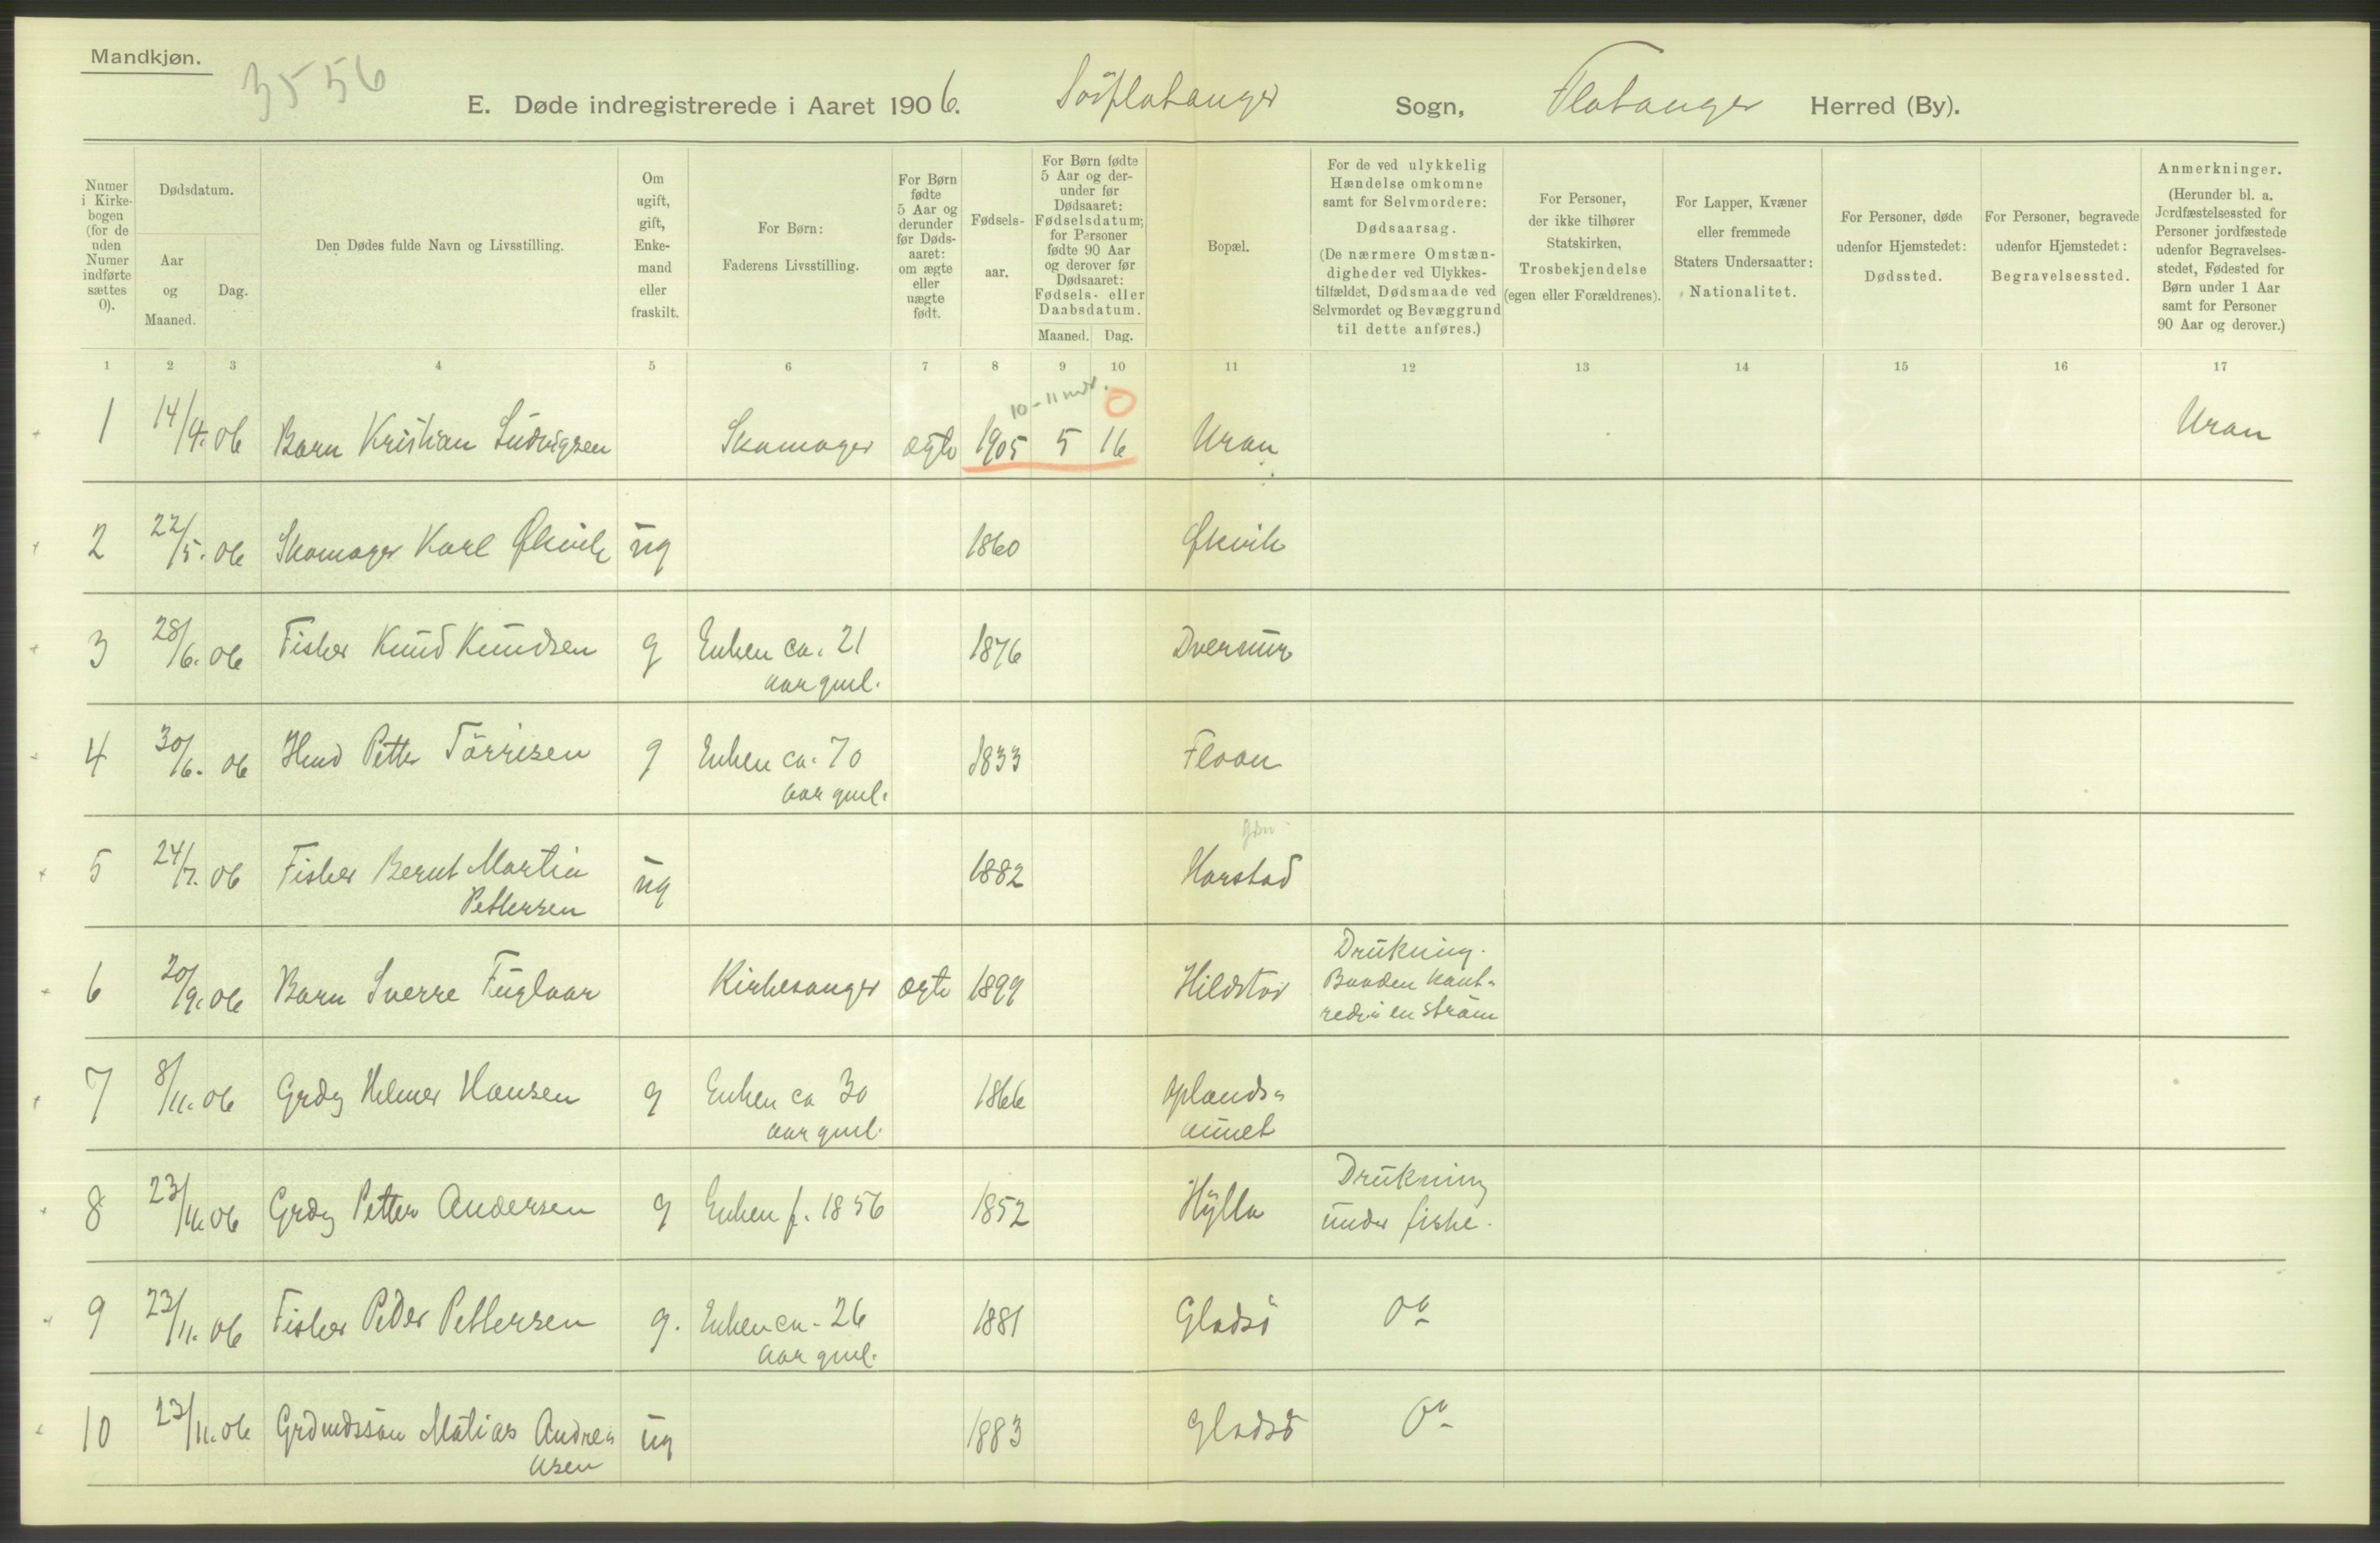 Mandkjøn.
3556
E. Døde indregistrerede i Aaret 1906. Sörflatanger Sogn, Flatanger Herred (By).
Numer i Kirkebogen (for de uden Numer indførte sættes 0).
Dødsdatum.
Aar og Maaned.
Dag.
Den Dødes fulde Navn og Livsstilling.
Om ugift, gift, Enkemand eller fraskilt.
For Børn:
Faderens Livsstilling.
For Børn fødte 5 Aar og derunder før Dødsaaret: om ægte eller uægte født.
Fødselsaar.
For Børn fødte 5 Aar og derunder før Dødsaaret: Fødselsdatum; for Personer fødte 90 Aar og derover før Dødsaaret: Fødsels- eller Daabsdatum.
Maaned. Dag.
Bopæl.
For de ved ulykkelig Hændelse omkomne samt for Selvmordere:
Dødsaarsag.
(De nærmere Omstændigheder ved Ulykkestilfældet, Dødsmaade ved Selvmordet og Bevæggrund til dette anføres.)
For Personer, der ikke tilhører Statskirken,
Trosbekjendelse
(egen eller Forældrenes).
For Lapper, Kvæner eller fremmede Staters Undersaatter:
Nationalitet.
For Personer, døde udenfor Hjemstedet:
Dødssted.
For Personer, begravede udenfor Hjemstedet:
Begravelsessted.
Anmerkninger.
(Herunder bl. a. Jordfæstelsessted for Personer jordfæstede udenfor Begravelsesstedet, Fødested for Børn under 1 Aar samt for Personer 90 Aar og derover.)
1 2 3 4 5 6 7 8 9 10 11 12 13 14 15 16 17
10-11 md. 0
1 14/4. 06 Barn Kristian Ludvigsen Skomager ægte 1905 5 16 Uran Uran
2 22/5. 06 Skomager Karl Økvik ug 1860 Økvik
3 28/6. 06 Fisker Knud Knudsen g Enken ca. 21
aar gml. 1876
4 30/6. 06 Petter Törrisen g Enken ca. 70
aar gml. 1833 Floan
5 24/7. 06 Fisker Bernt Martin
Pettersen ug 1882 Harstad
6 20/9. 06 Barn Sverre Fuglaar Kirkesanger ægte 1899 Drukning.
Baaden kant-
red i en ström
7 8/11. 06 Grdbr Helmer Hansen g Enken ca 30
aar gml. 1866 Oplands-
aunet
8 23/11. 06 Grdbr Petter Andersen g Enken f. 1856 1852 Hylla Drukning
under fiske.
9 23/11. 06 Fisker Peder Pettersen g. Enken ca. 26
aar gml. 1881 Gladsö Do
10 23/11. 06 Grdmdssön Matias Andrea-
asen ug 1883 Gladsö Do